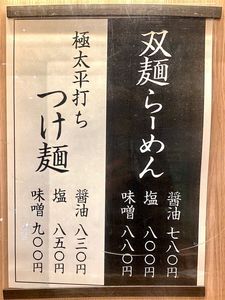 双麺らーめん
醤油 七八〇円
塩 八〇〇円
味噌 八八〇円
極太平打ち
つけ麺
醤油 八三〇円
塩 八五〇円
味噌 九〇〇円